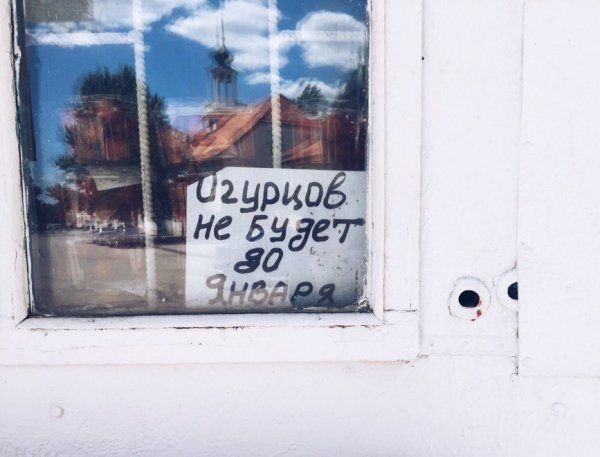 Огурцов
не будет
до
Января